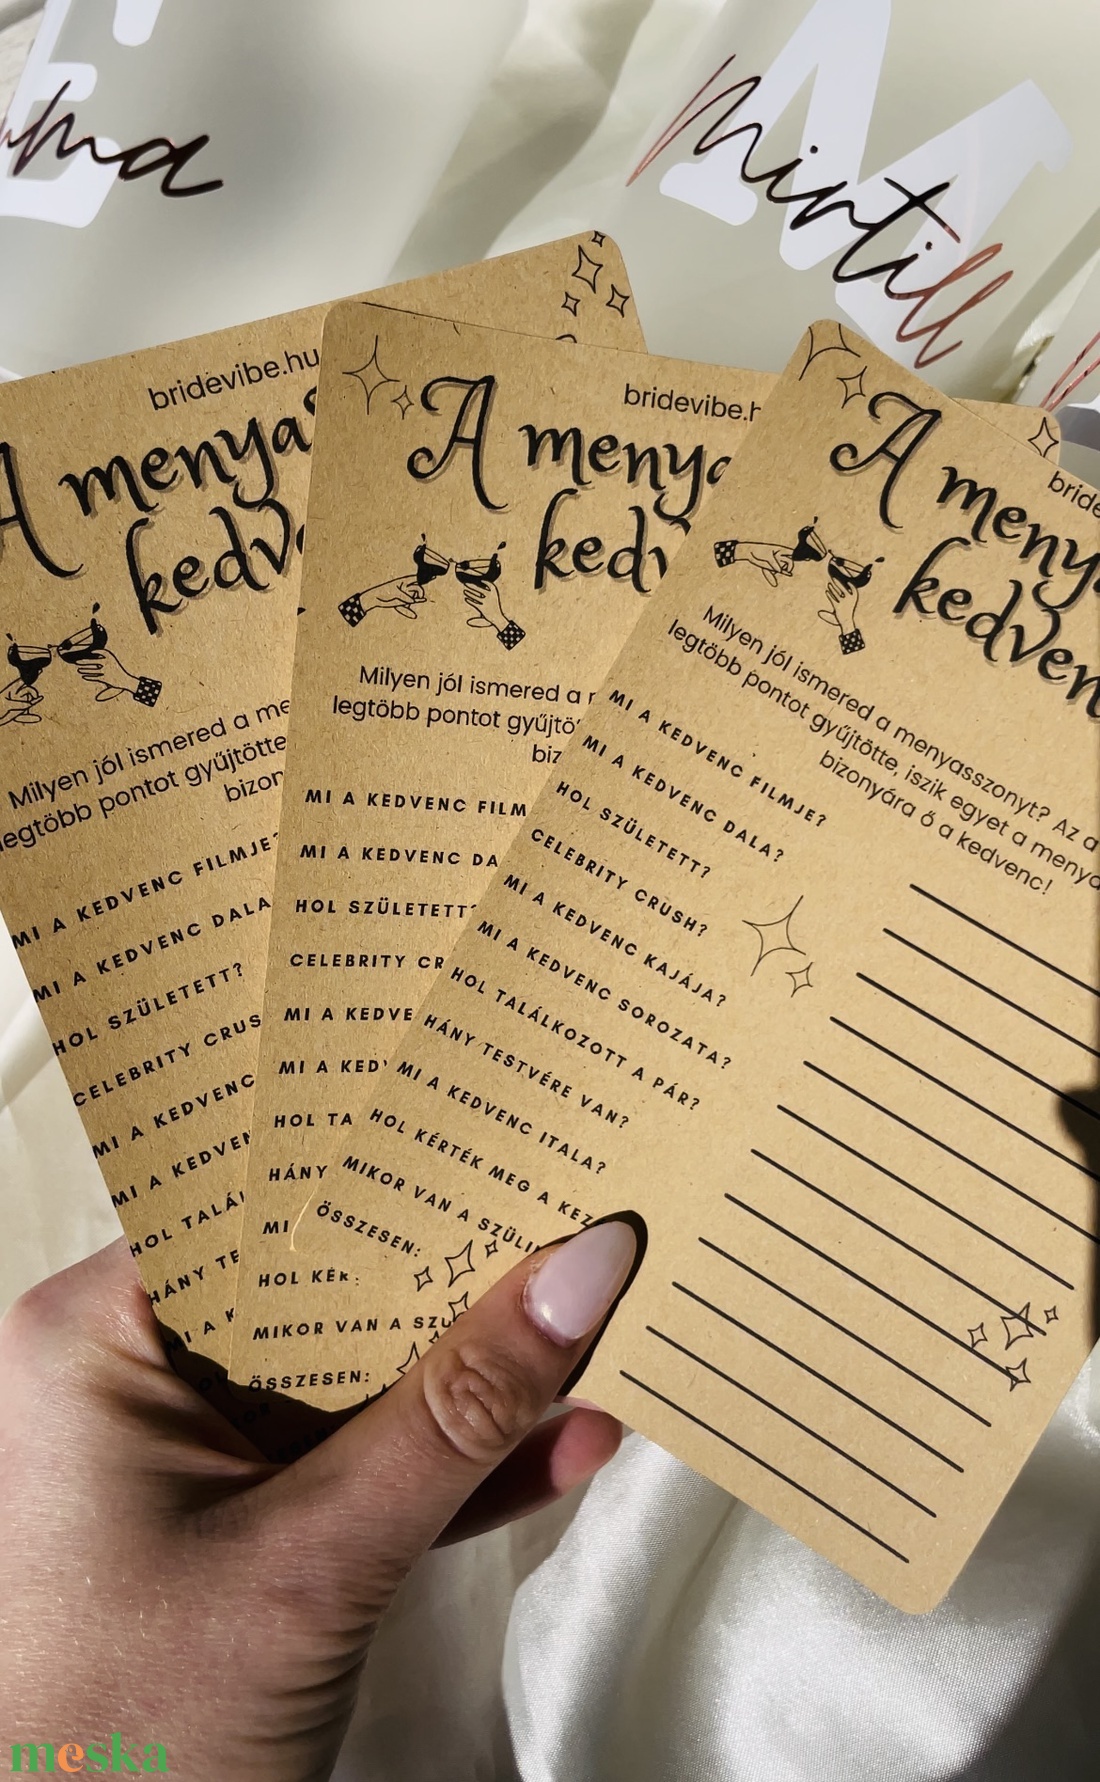 Mirtill
bridevibe.hu
A menyas
kedv
Milyen jól ismered a me
legtöbb pontot gyűjtötte
bizon
MI A KEDVENC FILMJE?
MI A KEDVENC DALA
HOL SZÜLETETT?
CELEBRITY CRUS
MI A KEDVENC
MI A KEDVEN
HOL TALÁL
HÁNY TE
MI A K
bridevibe.h
A menya
kedv
Milyen jól ismered a
legtöbb pontot gyűjtö
biz
MI A KEDVENC FILM
MI A KEDVENC DA
HOL SZÜLETETT?
CELEBRITY CR
MI A KEDVE
MI A KED
HOL TA
HÁNY
MI
HOL KÉR
MIKOR VAN A SZÜ
ÖSSZESEN:
bride
A menya
kedven
Milyen jól ismered a menyasszonyt? Az a
legtöbb pontot gyűjtötte, iszik egyet a menya
bizonyára ő a kedvenc!
MI A KEDVENC FILMJE?
MI A KEDVENC DALA?
HOL SZÜLETETT?
CELEBRITY CRUSH?
MI A KEDVENC KAJÁJA?
MI A KEDVENC SOROZATA?
HOL TALÁLKOZOTT A PÁR?
HÁNY TESTVÉRE VAN?
MI A KEDVENC ITALA?
HOL KÉRTÉK MEG A KEZ
MIKOR VAN A SZÜLI
ÖSSZESEN:
meska